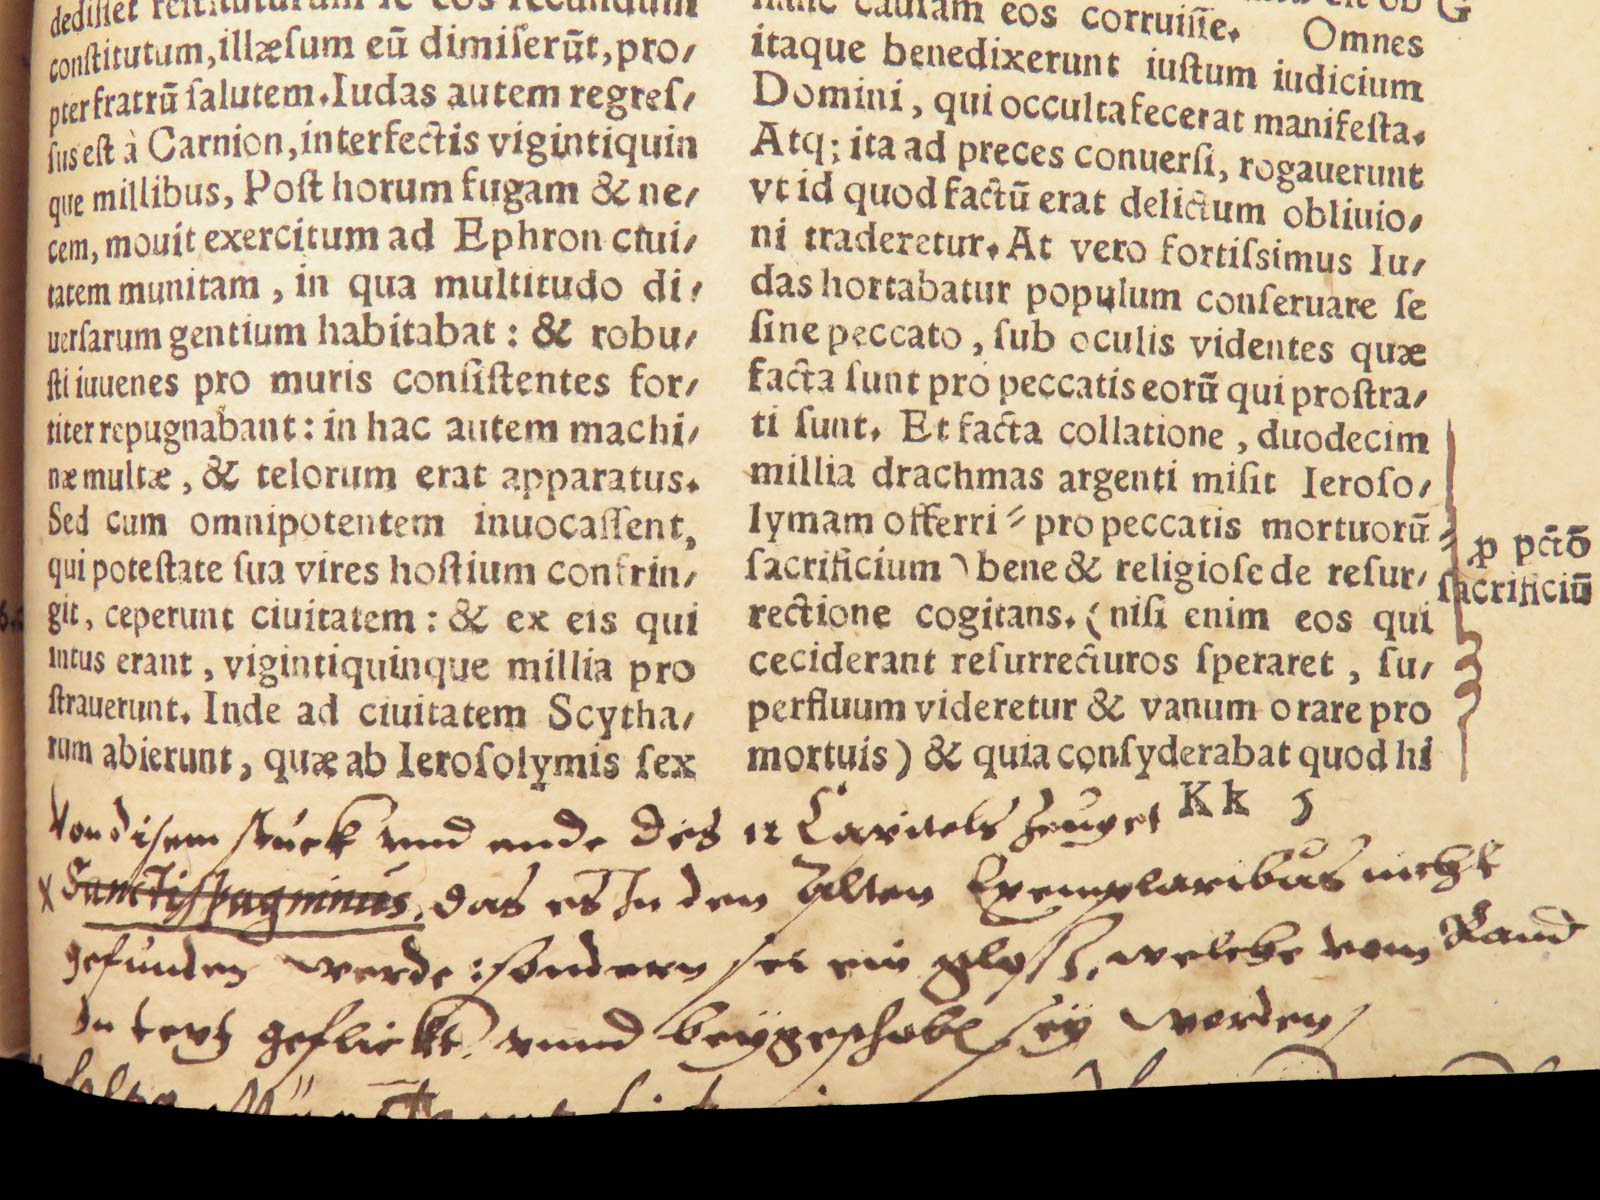 dedisset restituturum se eos secundum
constitutum, illæsum eũ dimiserũt, pro/
pter fratrũ salutem. Iudas autem regres/
sus est à Carnion, interfectis vigintiquin
que millibus, Post horum fugam & ne/
cem, mouit exercitum ad Ephron ciui/
tatem munitam, in qua multitudo di/
uersarum gentium habitabat: & robu/
sti iuuenes pro muris consistentes for/
titer repugnabant: in hac autem machi/
næ multæ, & telorum erat apparatus.
Sed cum omnipotentem inuocassent,
qui potestate sua vires hostium confrin/
git, ceperunt ciuitatem: & ex eis qui
intus erant, vigintiquinque millia pro
strauerunt. Inde ad ciuitatem Scytha/
rum abierunt, quæ ab Ierosolymis sex
G
hanc causam eos corruisse. Omnes
itaque benedixerunt iustum iudicium
Domini, qui occulta fecerat manifesta.
Atq; ita ad preces conuersi, rogauerunt
vt id quod factũ erat delictum obliuio/
ni traderetur. At vero fortissimus Iu/
das hortabatur populum conseruare se
sine peccato, sub oculis videntes quæ
facta sunt pro peccatis eorũ qui prostra/
ti sunt. Et facta collatione, duodecim
millia drachmas argenti misit Ieroso/
lymam offerri pro peccatis mortuorũ
sacrificium bene & religiose de resur/
rectione cogitans. (nisi enim eos qui
ceciderant resurrecturos speraret, su/
perfluum videretur & vanum orare pro
mortuis) & quia consyderabat quod hi
Kk 5
ꝓ pctõ
sacrificiũ
Von disem stuck vnd ende des 12 Capitels zeuget
x Sanctis pagninus, das es In den Alten Exemplaribus nicht
gefunden werde: sondern sei ein gloss, welche vom Rand
In text geflickt vnnd beygeschobē sey worden/